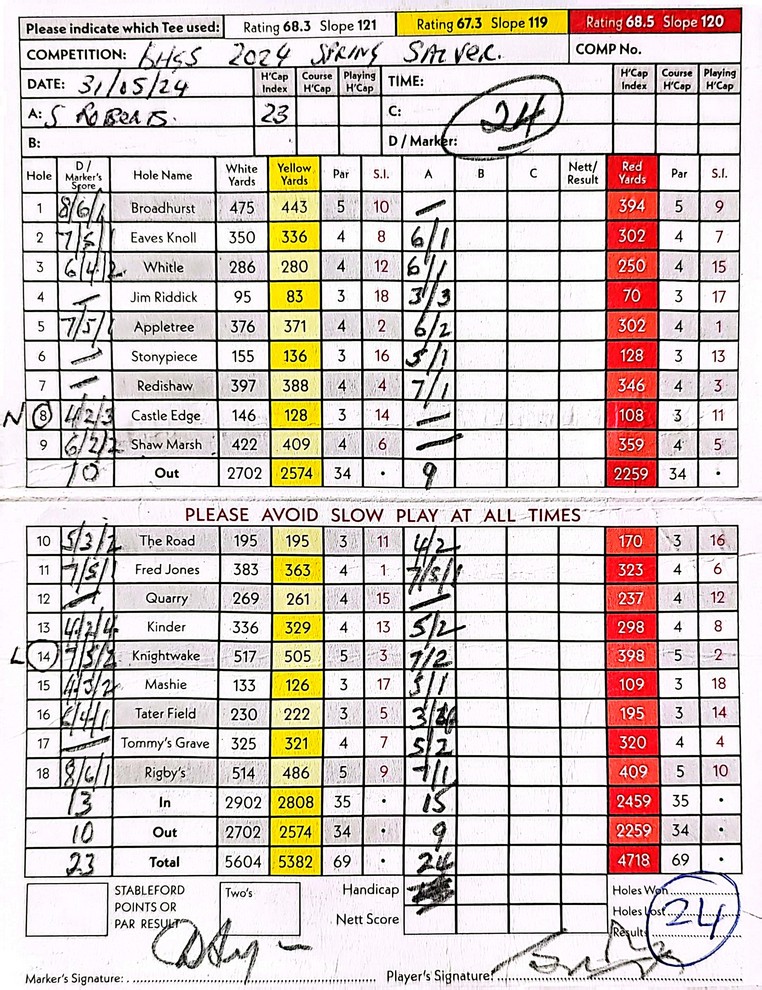 Please indicate which Tee used: Rating 68.3 Slope 121 Rating 67.3 Slope 119 Rating 68.5 Slope 120
COMPETITION: 2024 SPRING SALVER. COMP No.
DATE: 31/05/24 H'Cap Index Course H'Cap Playing H'Cap TIME: H'Cap Index Course H'Cap Playing H'Cap
A: S ROBERTS. 23 C: 24
B: D / Marker:
Hole D / Marker's Score Hole Name White Yards Yellow Yards Par S.I. A B C Nett/ Result Red Yards Par S.I.
1 8/6/1 Broadhurst 475 443 5 10 — 394 5 9
2 7/5/1 Eaves Knoll 350 336 4 8 6/1 302 4 7
3 6/4/2 Whitle 286 280 4 12 6/1 250 4 15
4 — Jim Riddick 95 83 3 18 3/3 70 3 17
5 7/5/1 Appletree 376 371 4 2 6/2 302 4 1
6 — Stonypiece 155 136 3 16 5/1 128 3 13
7 — Redishaw 397 388 4 4 7/1 346 4 3
N 8 4/2/3 Castle Edge 146 128 3 14 — 108 3 11
9 6/2/2 Shaw Marsh 422 409 4 6 — 359 4 5
10 Out 2702 2574 34 • 9 2259 34 •
PLEASE AVOID SLOW PLAY AT ALL TIMES
10 5/3/2 The Road 195 195 3 11 4/2 170 3 16
11 7/5/1 Fred Jones 383 363 4 1 7/5/1 323 4 6
12 — Quarry 269 261 4 15 — 237 4 12
13 4/2/4 Kinder 336 329 4 13 5/2 298 4 8
L 14 7/5/2 Knightwake 517 505 5 3 7/2 398 5 2
15 4/3/2 Mashie 133 126 3 17 5/1 109 3 18
16 /4/1 Tater Field 230 222 3 5 3/ 195 3 14
17 — Tommy's Grave 325 321 4 7 5/2 320 4 4
18 8/6/1 Rigby's 514 486 5 9 7/1 409 5 10
13 In 2902 2808 35 • 15 2459 35 •
10 Out 2702 2574 34 • 9 2259 34 •
23 Total 5604 5382 69 • 24 4718 69 •
STABLEFORD POINTS OR PAR RESULT Two's Handicap Holes Won
Nett Score Holes Lost 24
Result
Marker's Signature: Player's Signature: